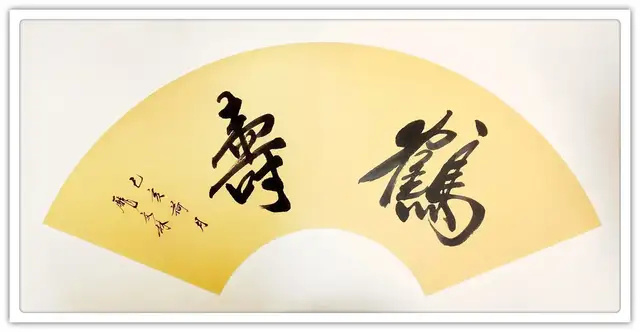 鶴壽
己亥荷月